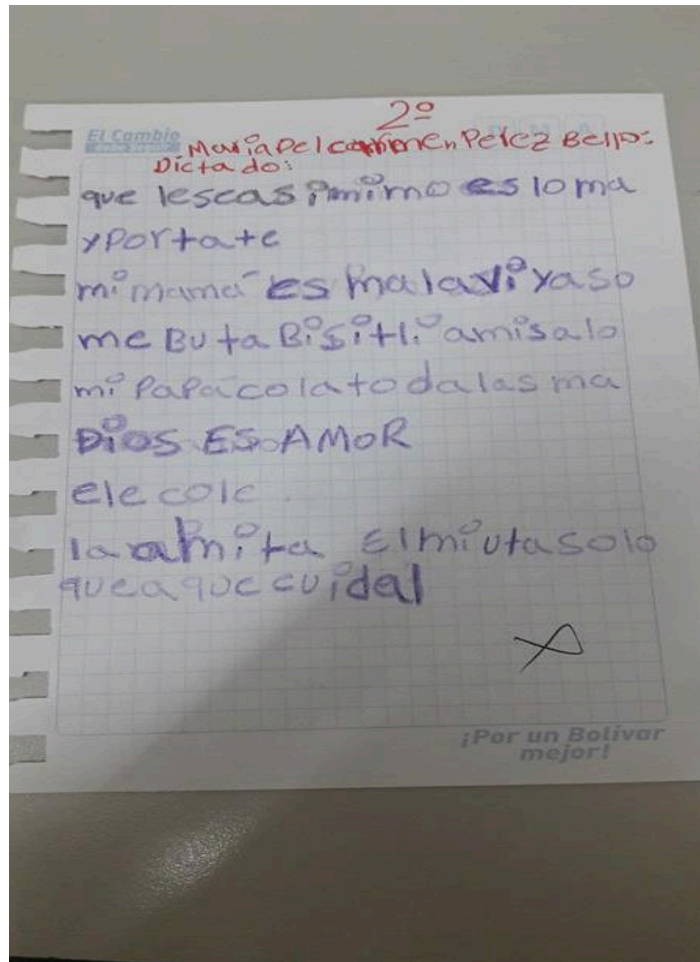 2º
El Cambio
Maria Del carmen Perez Bello:
Dictado:
que leseas imimo es lo ma
xportate
mi mamá es malavi yaso
me Buta Bisitli amisalo
mi Papá colatodalasma
DIOS ES AMOR
ele cole
la amita Elmiutasolo
queaque cuidal
¡Por un Bolívar
mejor!